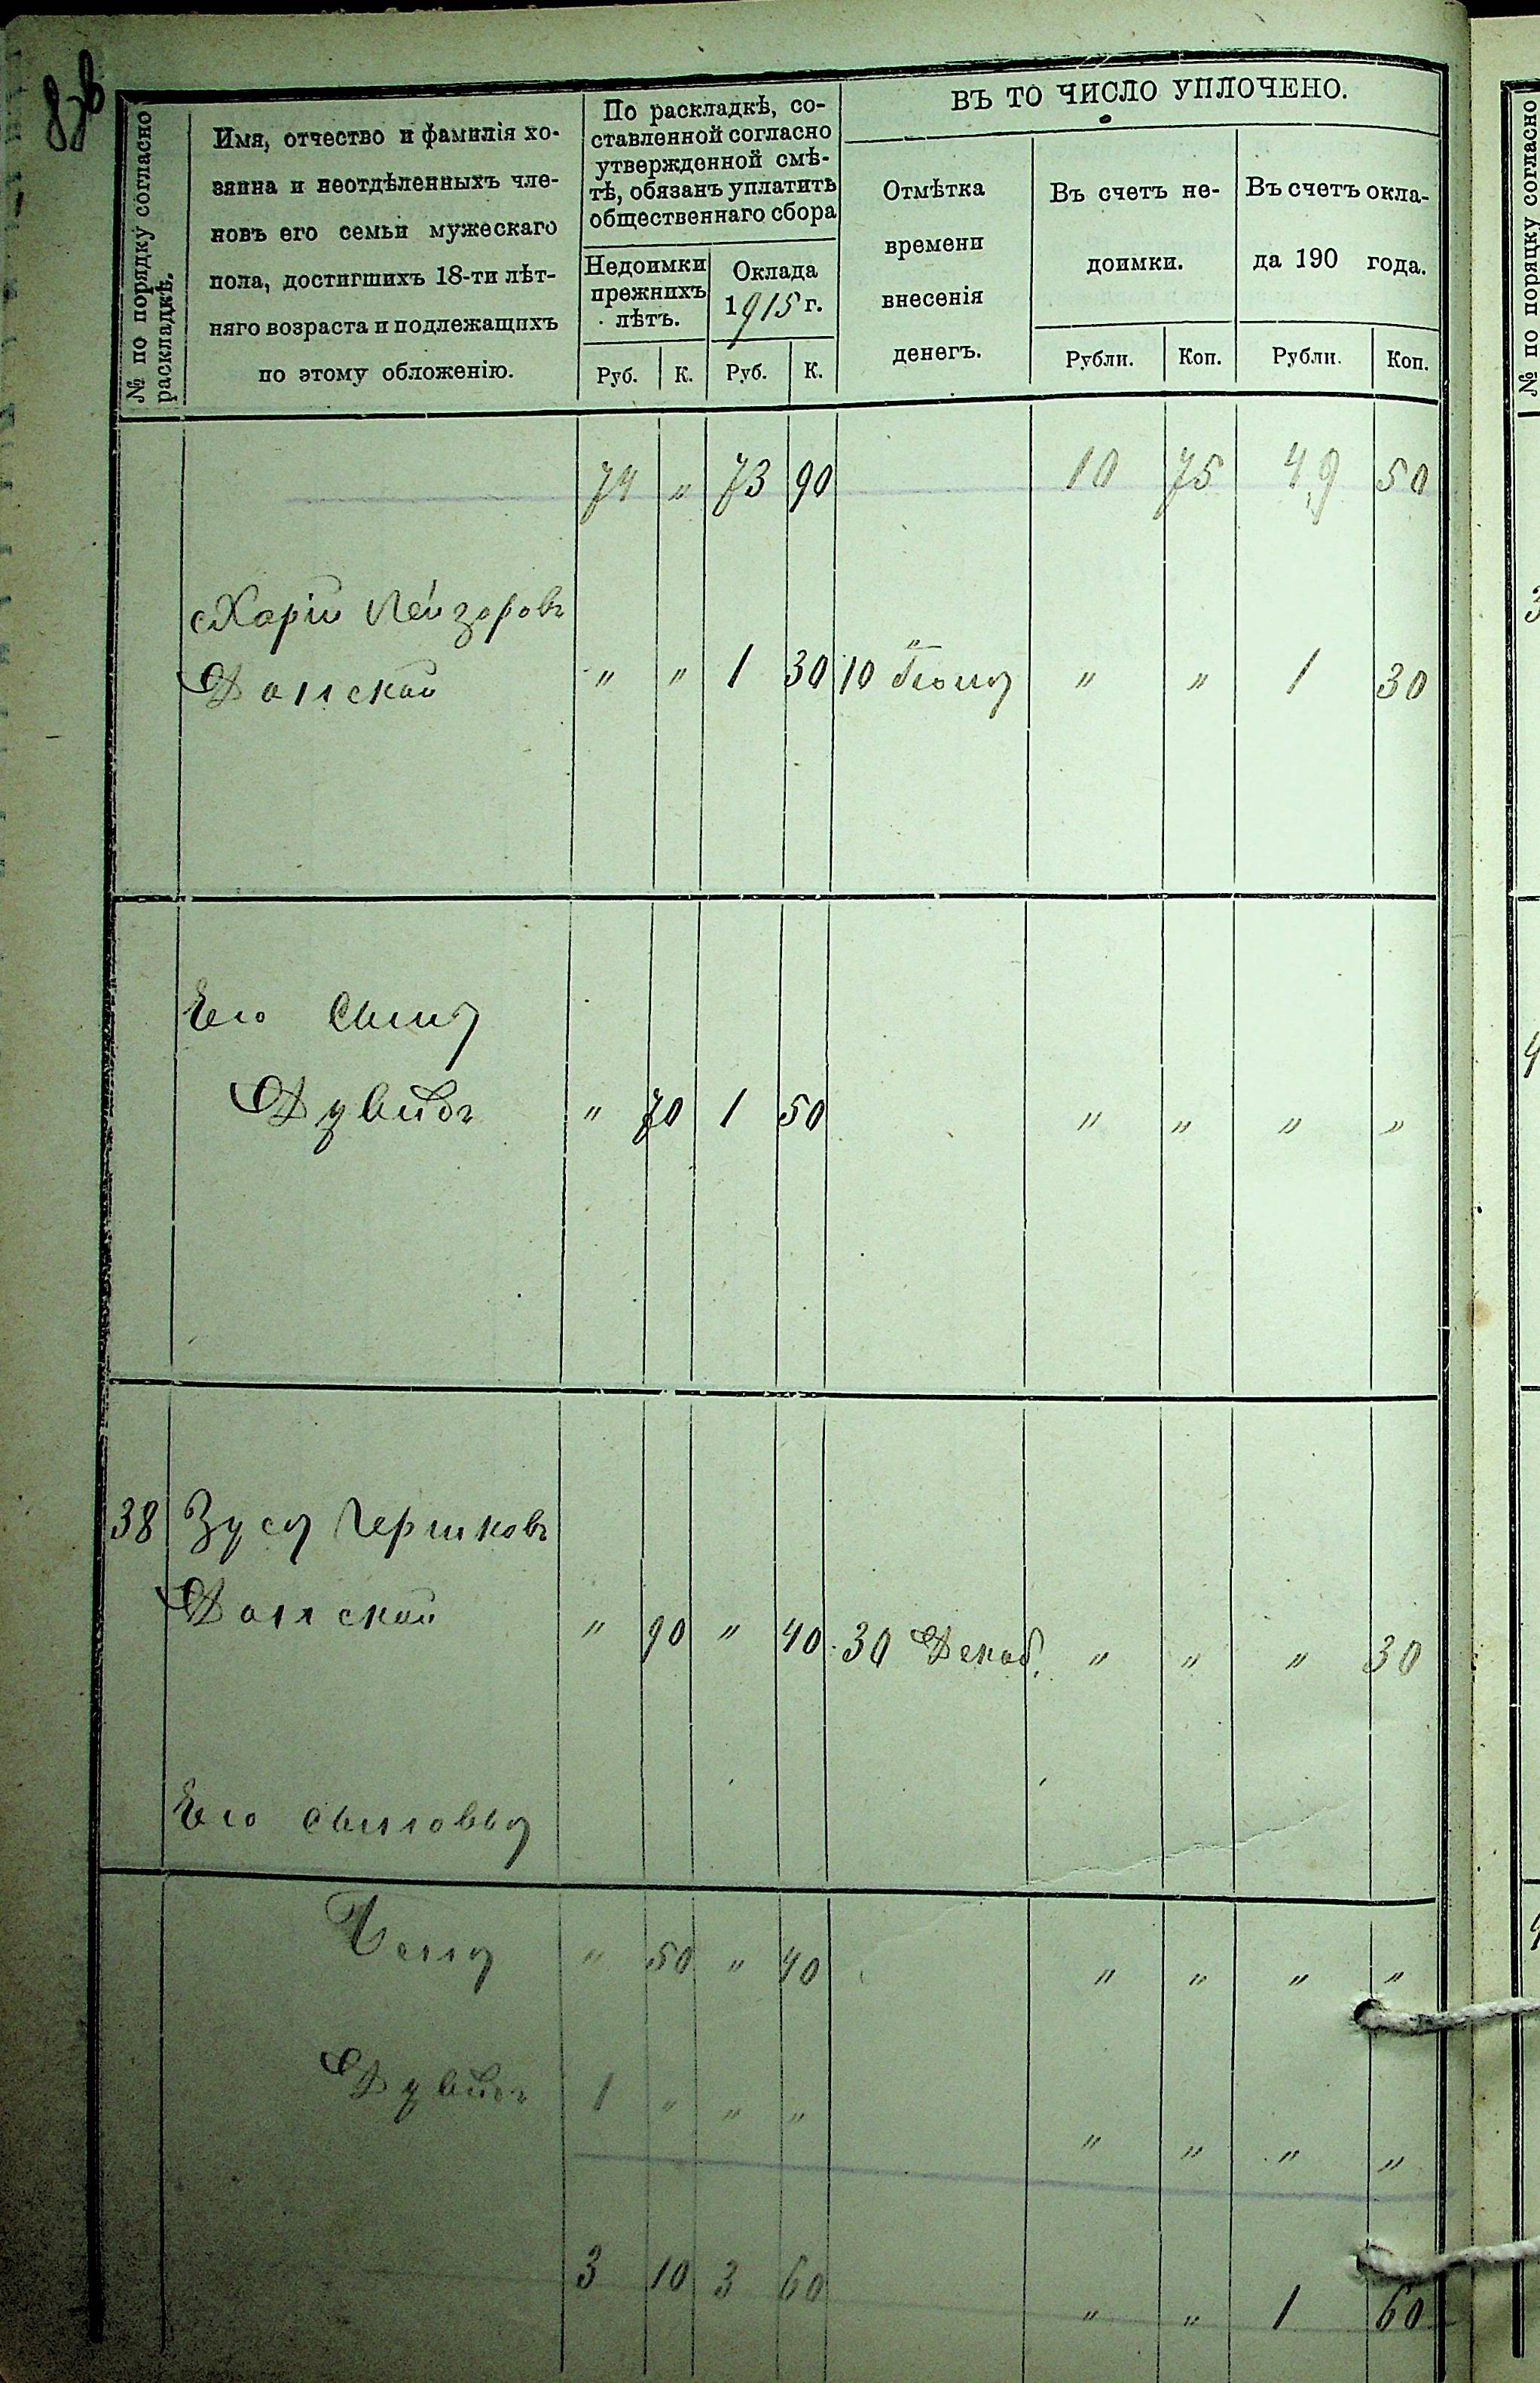 ВЪ ТО ЧИСЛО УПЛОЧЕНО.
№ по порядку согласно раскладкѣ.
Имя, отчество и фамилія хо-
зяина и неотдѣленныхъ чле-
новъ его семьи мужескаго
пола, достигшихъ 18-ти лѣт-
няго возраста и подлежащихъ
по этому обложенію.
По раскладкѣ, со-
ставленной согласно
утвержденной смѣ-
тѣ, обязанъ уплатить
общественнаго сбора
Недоимки прежнихъ лѣтъ.
Оклада 1915 г.
Руб. К. Руб. К.
Отмѣтка
времени
внесенія
денегъ.
Въ счетъ не-
доимки.
Рубли. Коп.
Въ счетъ окла-
да 190 года.
Рубли. Коп.
74 " 73 90 10 75 49 50
Лейзоровъ
" " 1 30 10 " " 1 30
Его Сынъ
" 70 1 50 " " " "
38 Зусъ Гершковъ
" 90 " 40 30 Декаб. " " " 30
Его сыновья
" 50 " 40 " " " "
1 " " " " " " "
3 10 3 60 " " 1 60
№ по порядку согласно